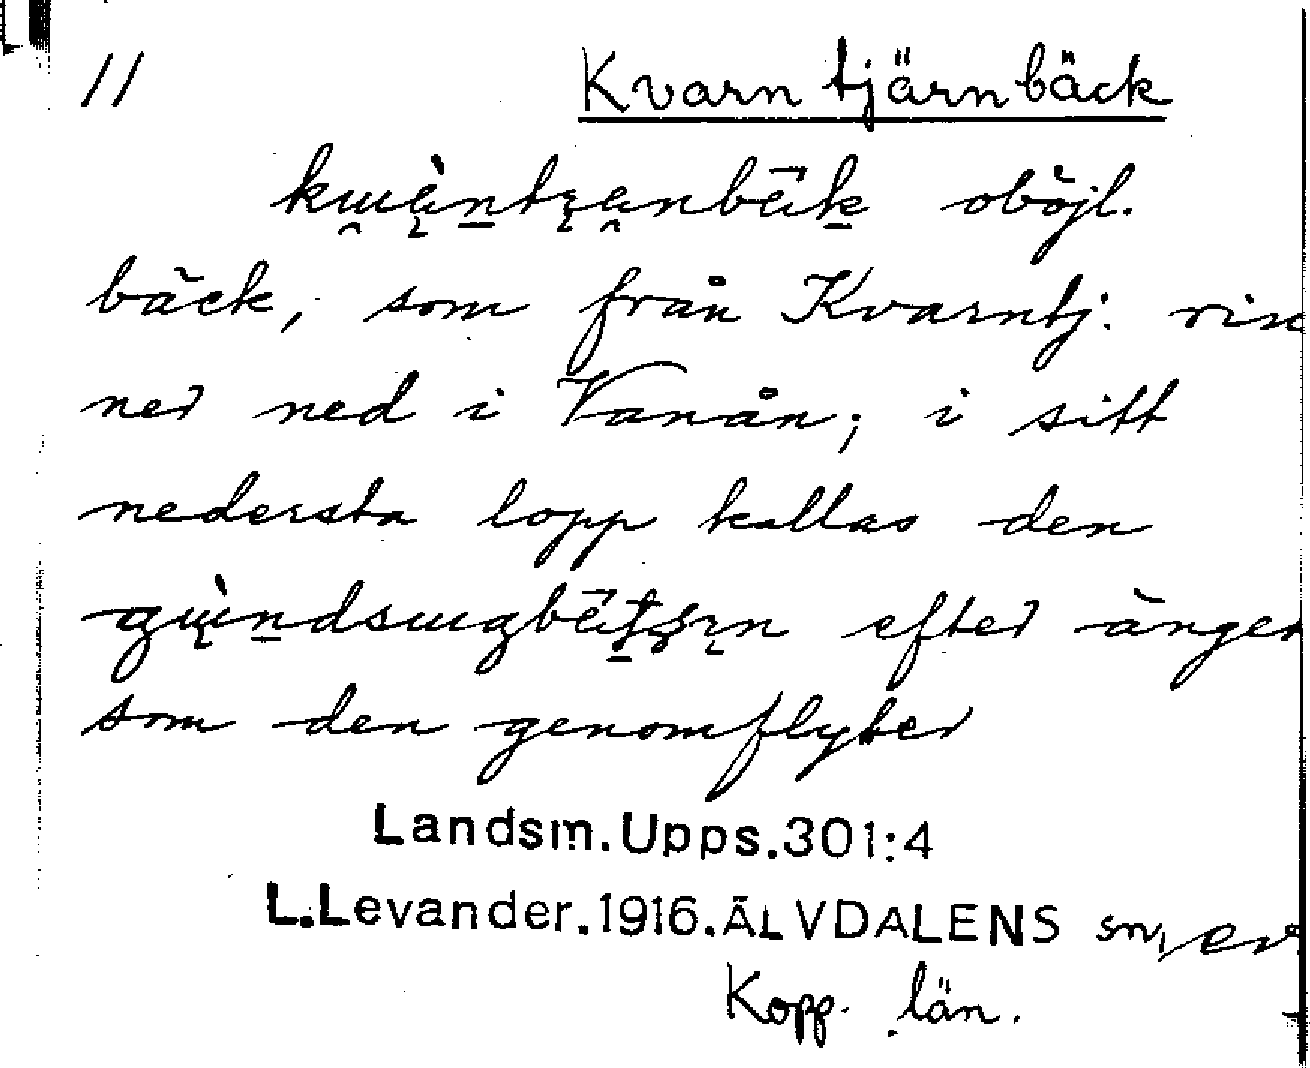 11 Kvarntjärnbäck
oböjl.
bäck, som från Kvarntj. rin
ner ned i Vanån; i sitt
nedersta lopp kallas den
efter ängen
som den genomflyter
Landsm.Upps.301:4
L.Levander.1916.ÄLVDALENS sn,
Kopp. län.